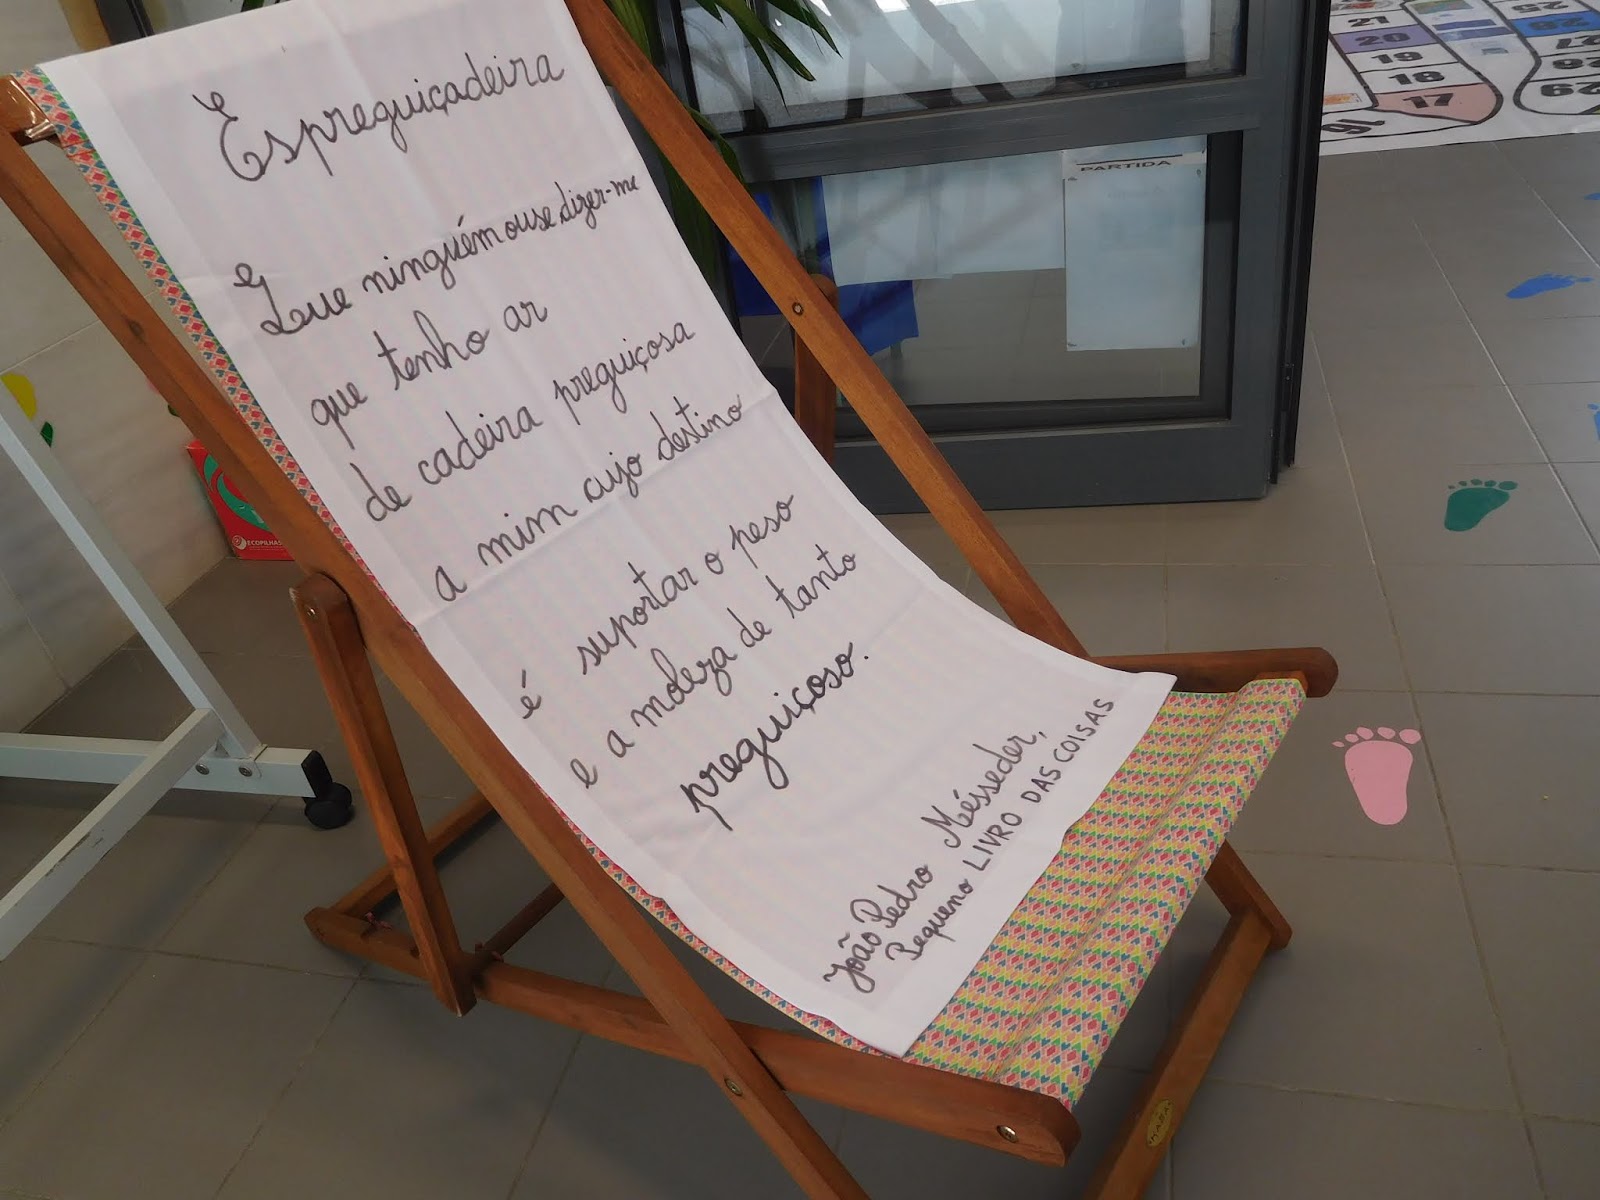 Espreguiçadeira
Que ninguém ouse dizer-me
que tenho ar
de cadeira preguiçosa
a mim cujo destino
é suportar o peso
e a moleza de tanto
preguiçoso.
João Pedro Mésseder,
Pequeno LIVRO DAS COISAS
PARTIDA
21
20
19
18
17
16
25
26
27
28
29
ECOPILHAS